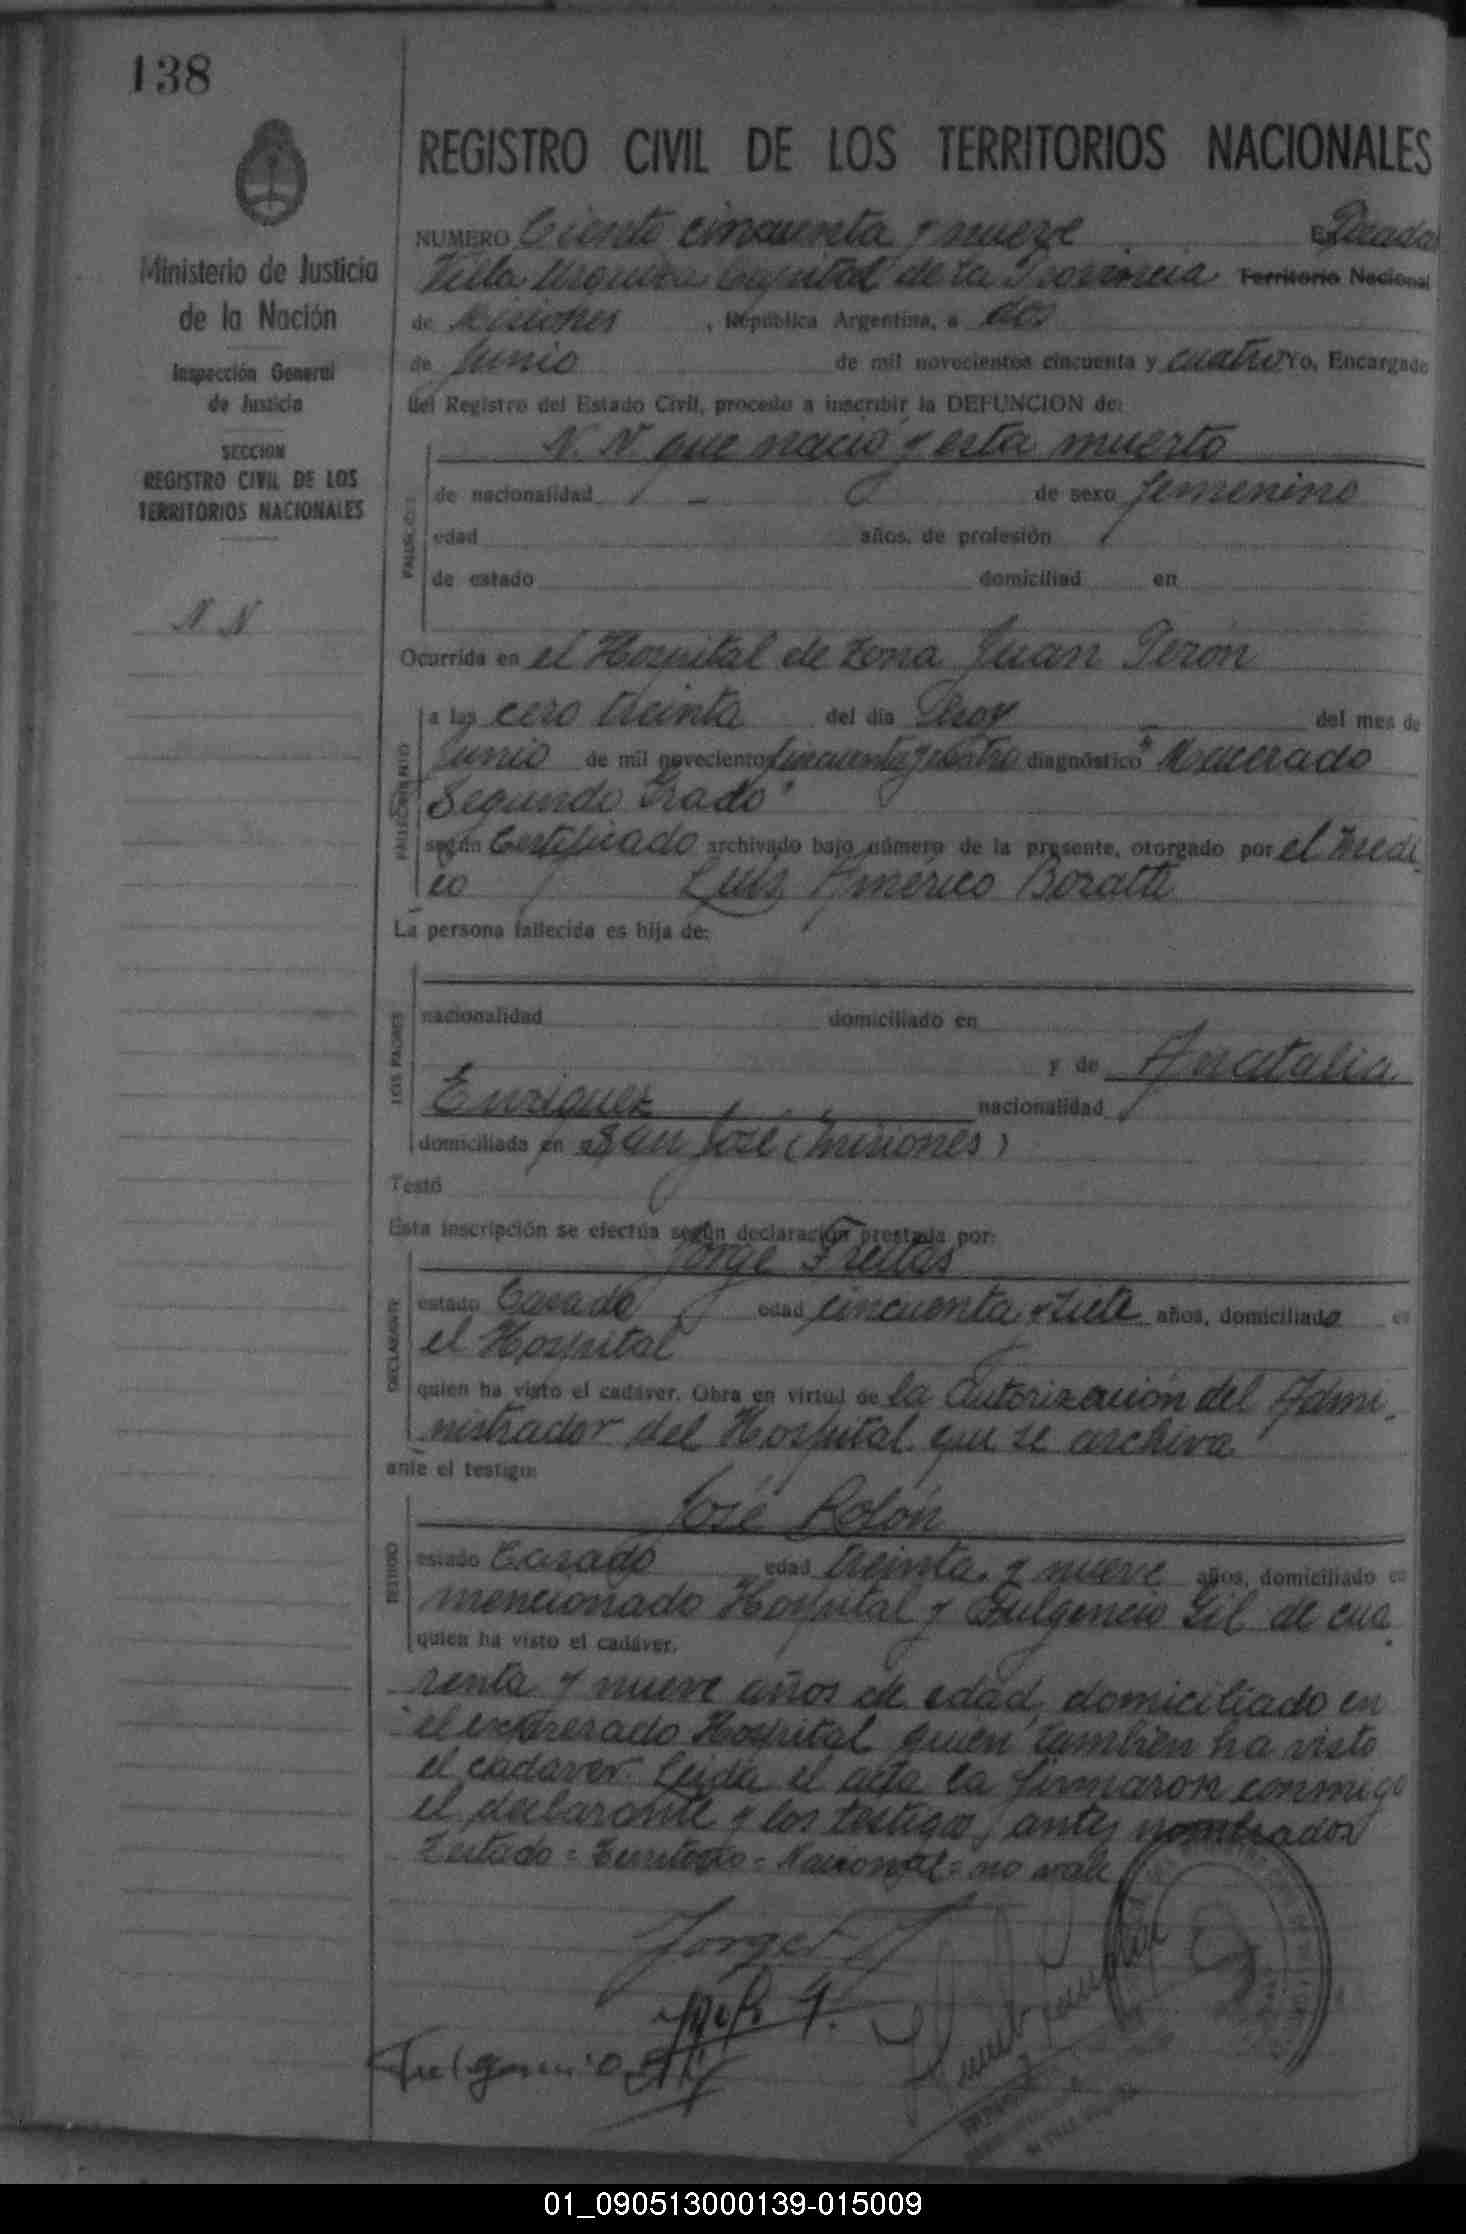 138
REGISTRO CIVIL DE LOS TERRITORIOS NACIONALES
Ministerio de Justicia
de la Nación
Inspección General
de Justicia
SECCION
REGISTRO CIVIL DE LOS
TERRITORIOS NACIONALES
N. N
NUMERO Ciento cincuenta y nueve En Posadas
Villa Urquiza Capital de la Provincia Territorio Nacional
de Misiones, República Argentina, a dos
de Junio de mil novecientos cincuenta y cuatro Yo, Encargado
del Registro del Estado Civil, procedo a inscribir la DEFUNCION de:
N. N que nació y esta muerto
de nacionalidad - de sexo femenino
edad años, de profesión
de estado domiciliad en
Ocurrida en el Hospital de Zona Juan Perón
FALLECIMIENTO
a las cero treinta del día hoy del mes de
Junio de mil novecientos cincuenta y cuatro diagnóstico "Macerado
Segundo Grado"
según Certificado archivado bajo número de la presente, otorgado por el Médi
co Luis Américo Boratti
La persona fallecida es hija de:
LOS PADRES
nacionalidad domiciliado en
y de Anatalia
Enriquez nacionalidad
domiciliada en San José (Misiones)
Testó
Esta inscripción se efectúa según declaración prestada por:
Jorge Freitas
DECLARANTE
estado Casado edad cincuenta y siete años, domiciliado en
el Hospital
quien ha visto el cadáver. Obra en virtud de la autorización del Admi-
nistrador del Hospital que se archiva
ante el testigo:
José Rolón
TESTIGO
estado Casado edad treinta y nueve años, domiciliado en
mencionado Hospital y Fulgencio Gil de cua
quien ha visto el cadáver.
renta y nueve años de edad, domiciliado en
el expresado Hospital quien tambien ha visto
el cadaver. Leida el acta la firmaron conmigo
el declarante y los testigos antes nombrados
Testado = Territorio = Nacional = no vale
Jorge F
Fulgencio Gil
01_090513000139-015009